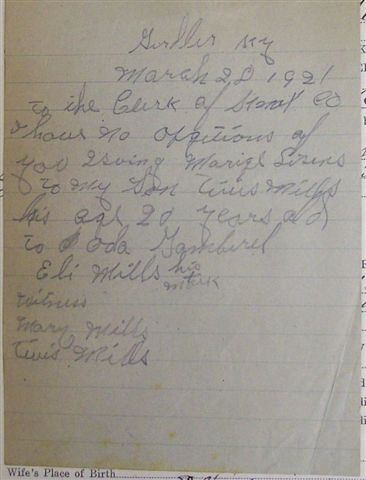 Girdler Ky
March 20 1921
to the Clerk of Co
I have no opsitions of
you Marige Lisens
to my Son Tivis Mills
his age 20 years old
to Oda
Eli Mills his
mark
witness
Mary Mills
Tivis Mills
Wife's Place of Birth